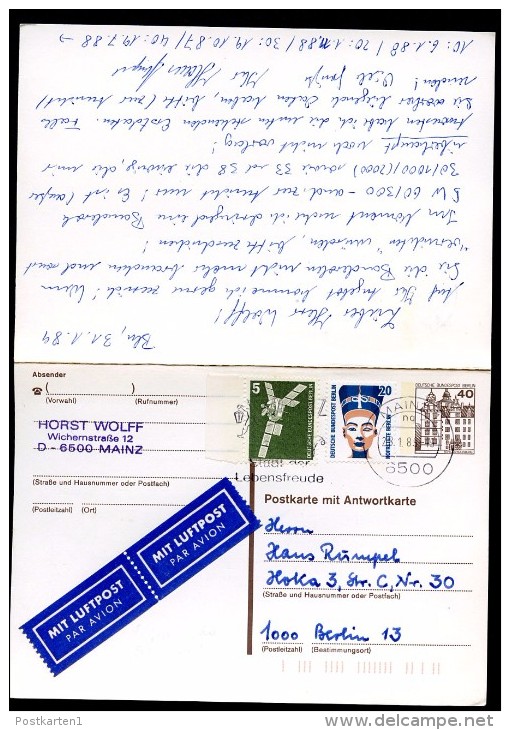 Bln, 3.1.89
Lieber Herr Wolff!
Auf Ihr Angebot komme ich gerne zurück! Wenn
Sie die Banderolen nicht mehr brauchen und sonst
"vernichten" würden, bitte zuschicken!
Im Moment suche ich dringend eine Banderole
SW 60/300 - und zur Ansicht nur! Es ist (außer
30/1000/(2000) sowie 33 und 38 die einzige, die mir
überhaupt noch nicht vorlag!
Ansonsten habe ich die unten stehenden Erstdaten. Falls
Sie vorliegende Daten haben, bitte (zur Ansicht)
senden! Viele Grüße Ihr
10: 6.1.88 / 20: 1.11.88 / 30: 19.10.87 / 40: 19.7.88 →
Absender
(Vorwahl) (Rufnummer)
HORST WOLFF
Wichernstraße 12
D - 6500 MAINZ
(Straße und Hausnummer oder Postfach)
(Postleitzahl) (Ort)
5
DEUTSCHE BUNDESPOST BERLIN
20
DEUTSCHE BUNDESPOST BERLIN
NOFRETETE BERLIN
40
DEUTSCHE BUNDESPOST BERLIN
MAINZ
6500
Stadt der
Lebensfreude
Postkarte mit Antwortkarte
Herrn
Hans Rümpel
Hoka 3, Str. C, Nr. 30
(Straße und Hausnummer oder Postfach)
1000 Berlin 13
(Postleitzahl) (Bestimmungsort)
MIT LUFTPOST
PAR AVION
MIT LUFTPOST
PAR AVION
Postkarten1
delcampe.net